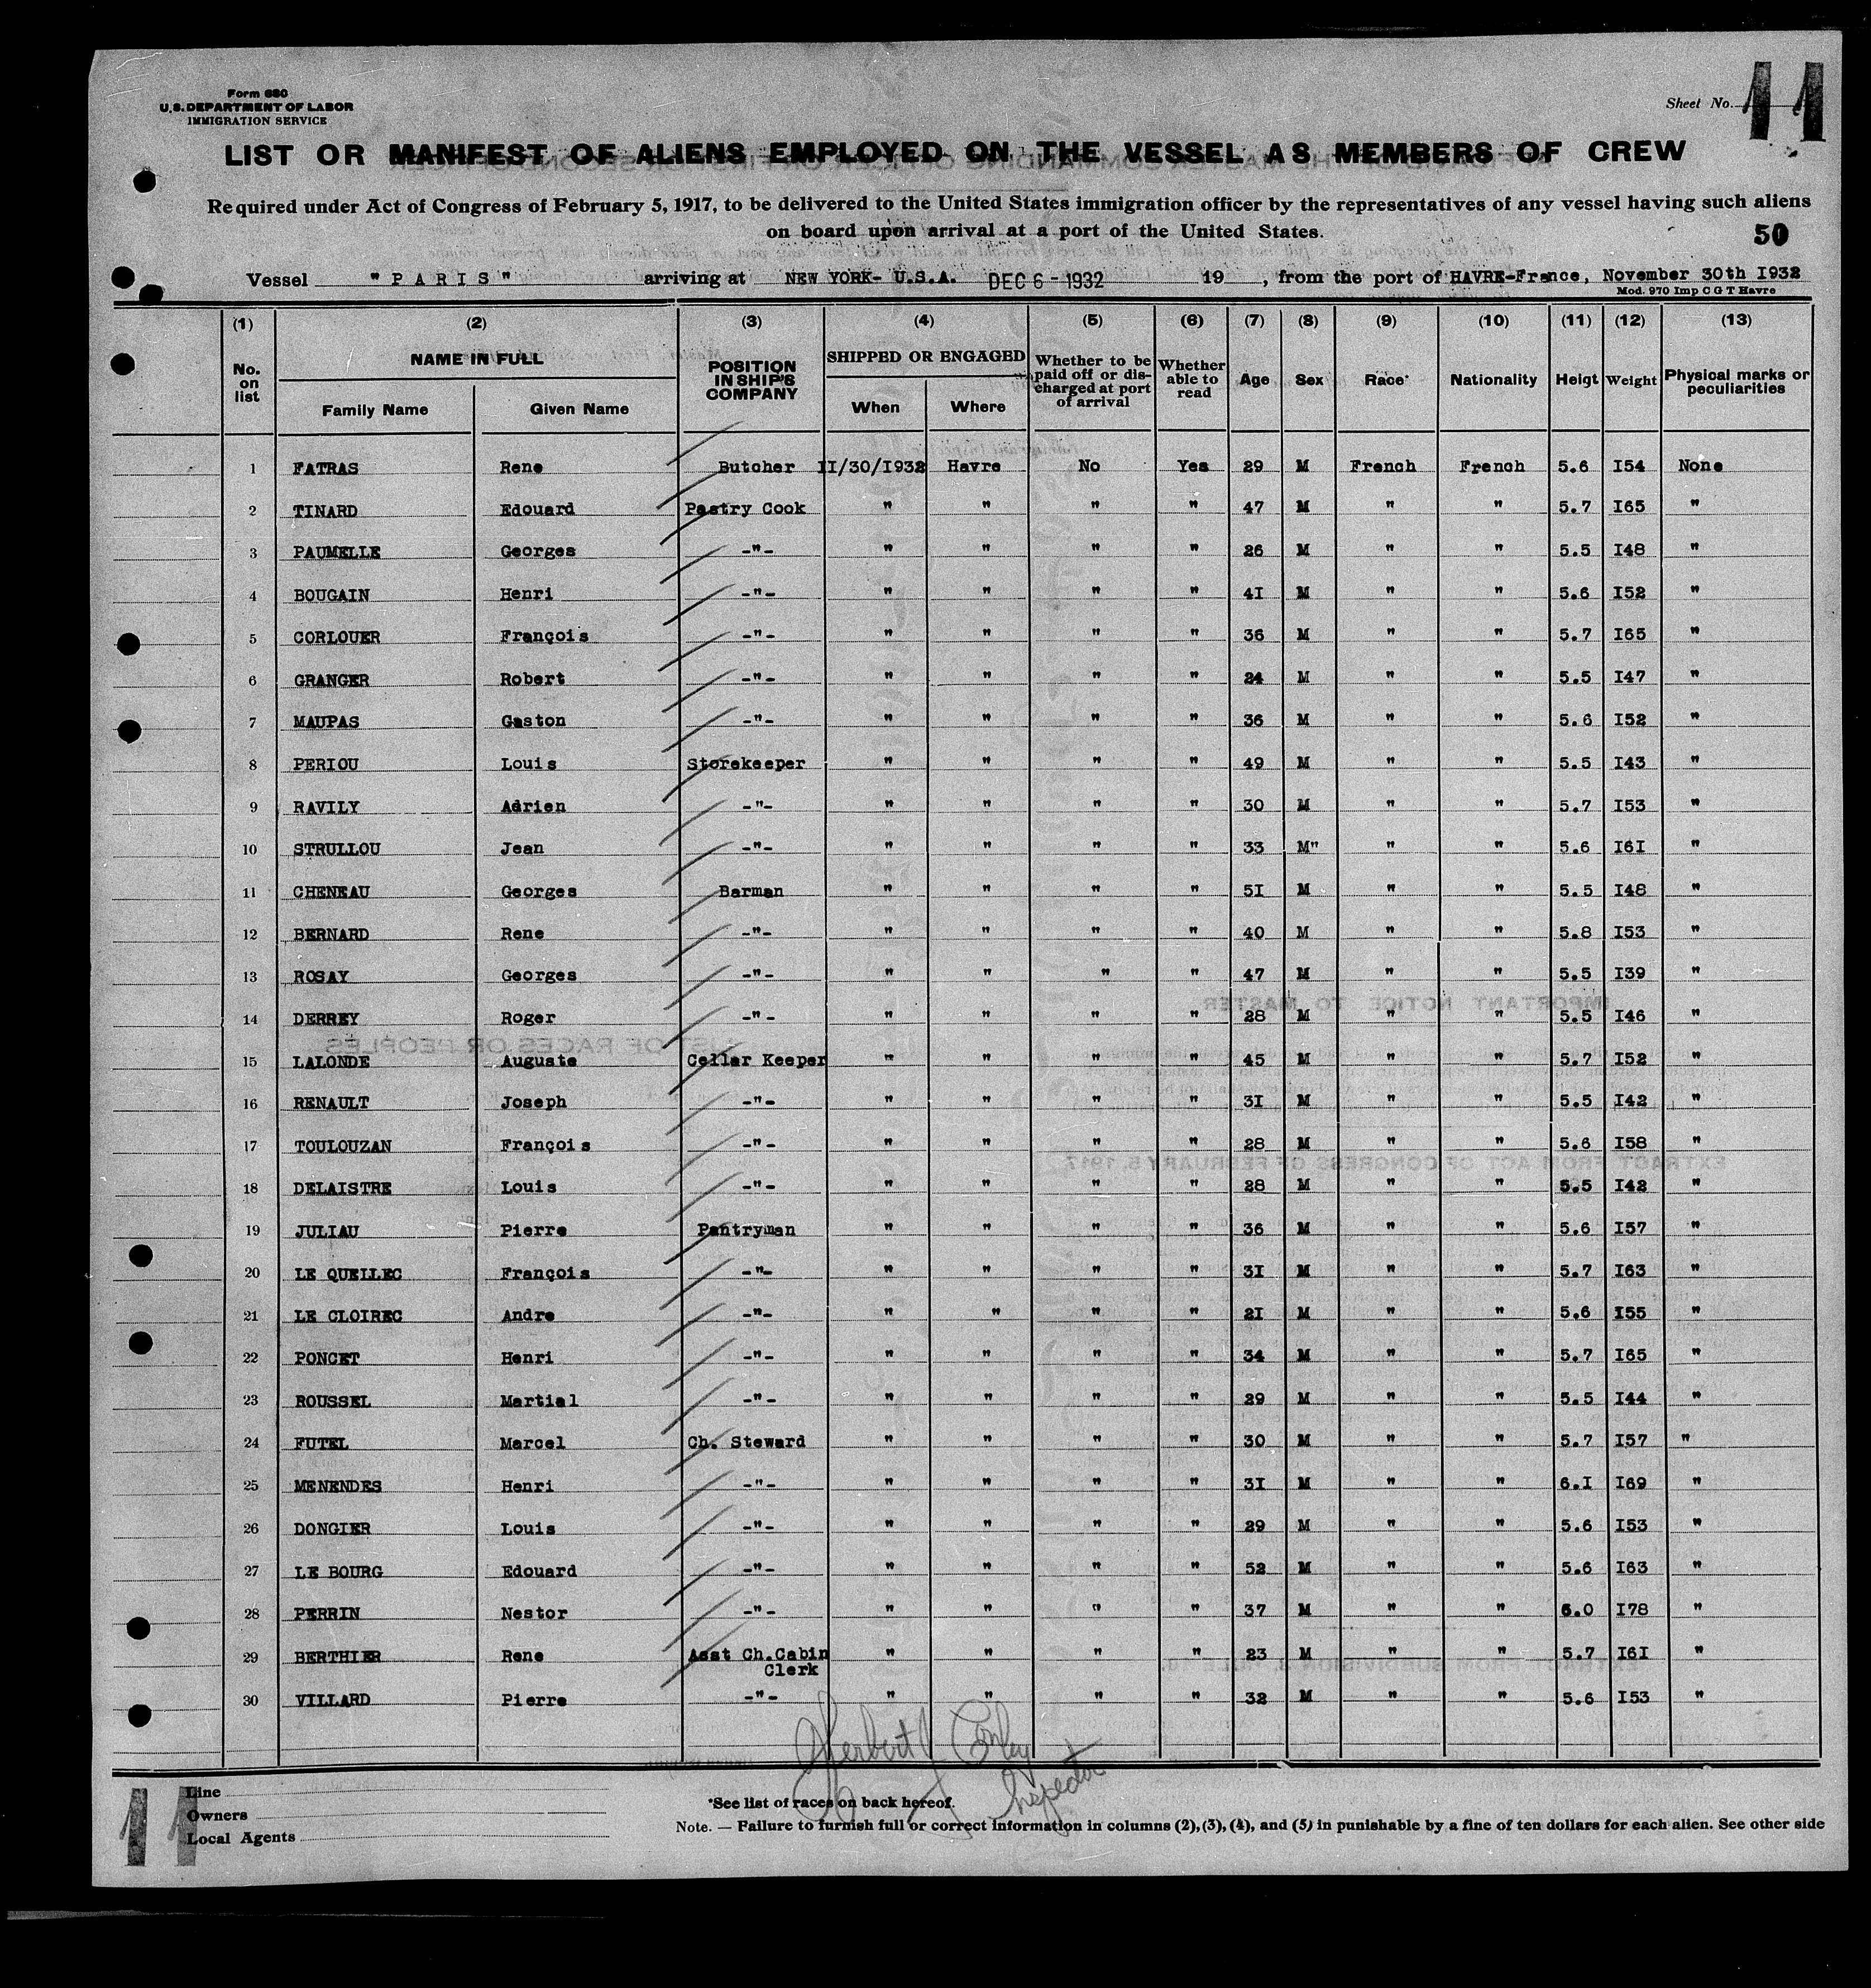 Form 680
U.S. DEPARTMENT OF LABOR
IMMIGRATION SERVICE
Sheet No. 11
LIST OR MANIFEST OF ALIENS EMPLOYED ON THE VESSEL AS MEMBERS OF CREW
Required under Act of Congress of February 5, 1917, to be delivered to the United States immigration officer by the representatives of any vessel having such aliens
on board upon arrival at a port of the United States.
50
Vessel "PARIS" arriving at NEW YORK- U.S.A. DEC 6 - 1932 19 , from the port of HAVRE-France, November 30th I932
Mod. 970 Imp C G T Havre
(1) (2) (3) (4) (5) (6) (7) (8) (9) (10) (11) (12) (13)
No. on list NAME IN FULL Family Name Given Name POSITION IN SHIP'S COMPANY SHIPPED OR ENGAGED When Where Whether to be paid off or discharged at port of arrival Whether able to read Age Sex Race* Nationality Heigt Weight Physical marks or peculiarities
1 FATRAS Rene Butcher II/30/I932 Havre No Yes 29 M French French 5.6 I54 None
2 TINARD Edouard Pastry Cook " " " " 47 M " " 5.7 I65 "
3 PAUMELLE Georges -"- " " " " 26 M " " 5.5 I48 "
4 BOUGAIN Henri -"- " " " " 4I M " " 5.6 I52 "
5 CORLOUER François -"- " " " " 36 M " " 5.7 I65 "
6 GRANGER Robert -"- " " " " 24 M " " 5.5 I47 "
7 MAUPAS Gaston -"- " " " " 36 M " " 5.6 I52 "
8 PERIOU Louis Storekeeper " " " " 49 M " " 5.5 I43 "
9 RAVILY Adrien -"- " " " " 30 M " " 5.7 I53 "
10 STRULLOU Jean -"- " " " " 33 M" " " 5.6 I6I "
11 CHENEAU Georges Barman " " " " 5I M " " 5.5 I48 "
12 BERNARD Rene -"- " " " " 40 M " " 5.8 I53 "
13 ROSAY Georges -"- " " " " 47 M " " 5.5 I39 "
14 DERREY Roger -"- " " " " 28 M " " 5.5 I46 "
15 LALONDE Auguste Cellar Keeper " " " " 45 M " " 5.7 I52 "
16 RENAULT Joseph -"- " " " " 3I M " " 5.5 I42 "
17 TOULOUZAN François -"- " " " " 28 M " " 5.6 I58 "
18 DELAISTRE Louis -"- " " " " 28 M " " 5.5 I42 "
19 JULIAU Pierre Pantryman " " " " 36 M " " 5.6 I57 "
20 LE QUELLEC François -"- " " " " 3I M " " 5.7 I63 "
21 LE CLOIREC Andre -"- " " " " 2I M " " 5.6 I55 "
22 PONCET Henri -"- " " " " 34 M " " 5.7 I65 "
23 ROUSSEL Martial -"- " " " " 29 M " " 5.5 I44 "
24 FUTEL Marcel Ch. Steward " " " " 30 M " " 5.7 I57 "
25 MENENDES Henri -"- " " " " 3I M " " 6.I I69 "
26 DONGIER Louis -"- " " " " 29 M " " 5.6 I53 "
27 LE BOURG Edouard -"- " " " " 52 M " " 5.6 I63 "
28 PERRIN Nestor -"- " " " " 37 M " " 6.0 I78 "
29 BERTHIER Rene Asst Ch.Cabin Clerk " " " " 23 M " " 5.7 I6I "
30 VILLARD Pierre -"- " " " " 32 M " " 5.6 I53 "
Herbert
Inspector
11
Line
Owners
Local Agents
*See list of races on back hereof.
Note. — Failure to furnish full or correct information in columns (2), (3), (4), and (5) in punishable by a fine of ten dollars for each alien. See other side